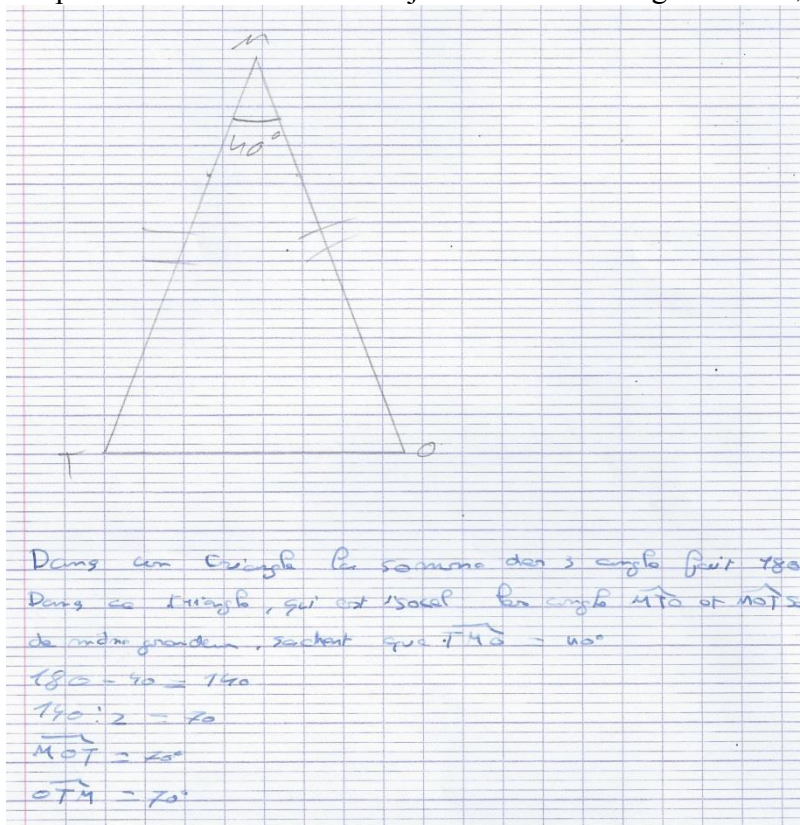 M
40°
T O
Dans un triangle la somme des 3 angle fait 180
Dans ce triangle, qui est isocel les angle MTO et MOT s
de même grandeur, sachent que TMO = 40°
180 - 40 = 140
140 : 2 = 70
MOT = 70°
OTM = 70°